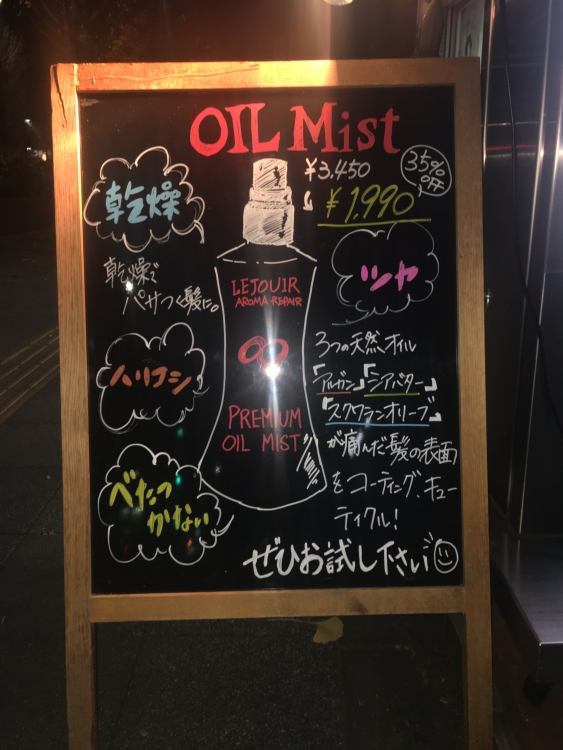 OIL Mist
¥3,450
35%
OFF
¥1,990
乾燥
乾燥で
パサつく髪に。
ツヤ
LEJOUIR
AROMA REPAIR
PREMIUM
OIL MIST
ハリコシ
べたつ
かない
3つの天然オイル
「アルガン」「シアバター」
「スクワランオリーブ」
が痛んだ髪の表面
をコーティング、キュー
ティクル!
ぜひお試し下さい